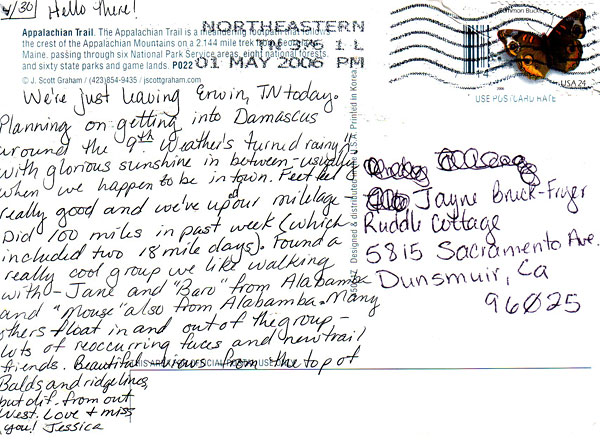 4/30
Hello there!
Appalachian Trail. The Appalachian Trail is a meandering footpath that follows
the crest of the Appalachian Mountains on a 2,144 mile trek from Georgia to
Maine, passing through six National Park Service areas, eight national forests,
and sixty state parks and game lands. P022
© J. Scott Graham / (423)854-9435 / jscottgraham.com
NORTHEASTERN
TN 376 1 L
01 MAY 2006 PM
Common Buckeye
USA 24
2006
USE POSTCARD RATE
We're just leaving Erwin, TN today.
Planning on getting into Damascus
around the 9th. Weather's turned rainy
with glorious sunshine in between - usually
when we happen to be in town. Feet feel
really good and we've up'd our mileage -
Did 100 miles in past week (which
included two 18 mile days). Found a
really cool group we like walking
with - Jane and "Baro" from Alabama
and "Mouse" also from Alabamba. Many
others float in and out of the group -
lots of reoccurring faces and new trail
friends. Beautiful views from the top of
Balds and ridgelines,
but dif. from out
West. Love + miss
you! Jessica
Designed & distributed in the U.S.A. Printed in Korea
Jayne Bruck-Fryer
Ruddle Cottage
5815 Sacramento Ave.
Dunsmuir, Ca
96025